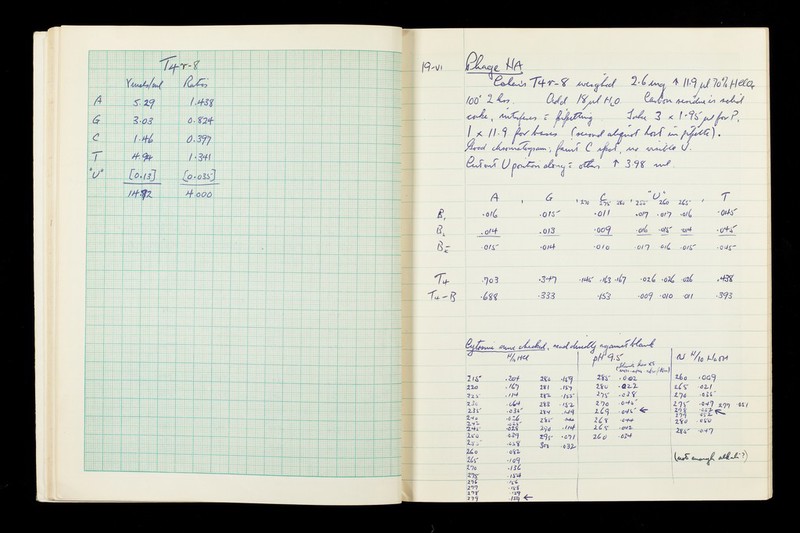 T4r-8
γmols/ml Ratios
A 5.29 1.438
G 3.03 0.824
C 1.46 0.397
T 4.94 1.341
"U" [0.13] [0.035]
4.000
19-VI Phage NA
Cohen's T4r-8 weighed 2.6 mg + 11.9 μl 70% HClO4
100° 2 hrs. Add 18 μl H2O Carbon residue is solid
cake, interferes c pipetting 3 x 1.95 μl for P.
1 x 11.9 for bases (second aliquot lost in pipette).
Good chromatogram, faint C spot, no visible U.
Cut out U portion along c others ↑ 3.98 ml
A , G , 270 C 275 280 , "U" 255 260 265 , T
B1 .016 .015 .011 .017 .017 .016 .045
B2 .014 .013 .009 .016 .015 .014 .045
B .015 .014 .010 .017 .016 .015 .045
T4 .703 .347 .145 .163 .167 .026 .026 .026 .438
T4-B .688 .333 .153 .009 .010 .011 .393
Cytosine curve checked, read directly against blank
N/10 HCl pH 9.5 N/10 NaOH
215 .204 280 .159 285 .002 260 .009
220 .167 281 .157 280 .022 265 .021
225 .114 282 .155 275 .038 270 .035
283 .152 270 .045 275 .047 277 .051
235 .035 284 .149 269 .045 ←
268 .044 280 .050
245 .028 290 .114 265 .042 285 .047
250 .039 295 .071 260 .034
255 .058 300 .032
260 .082
265 .109
270 .136
275
276
277
278
279 .159 ←
(not enough alkali?)